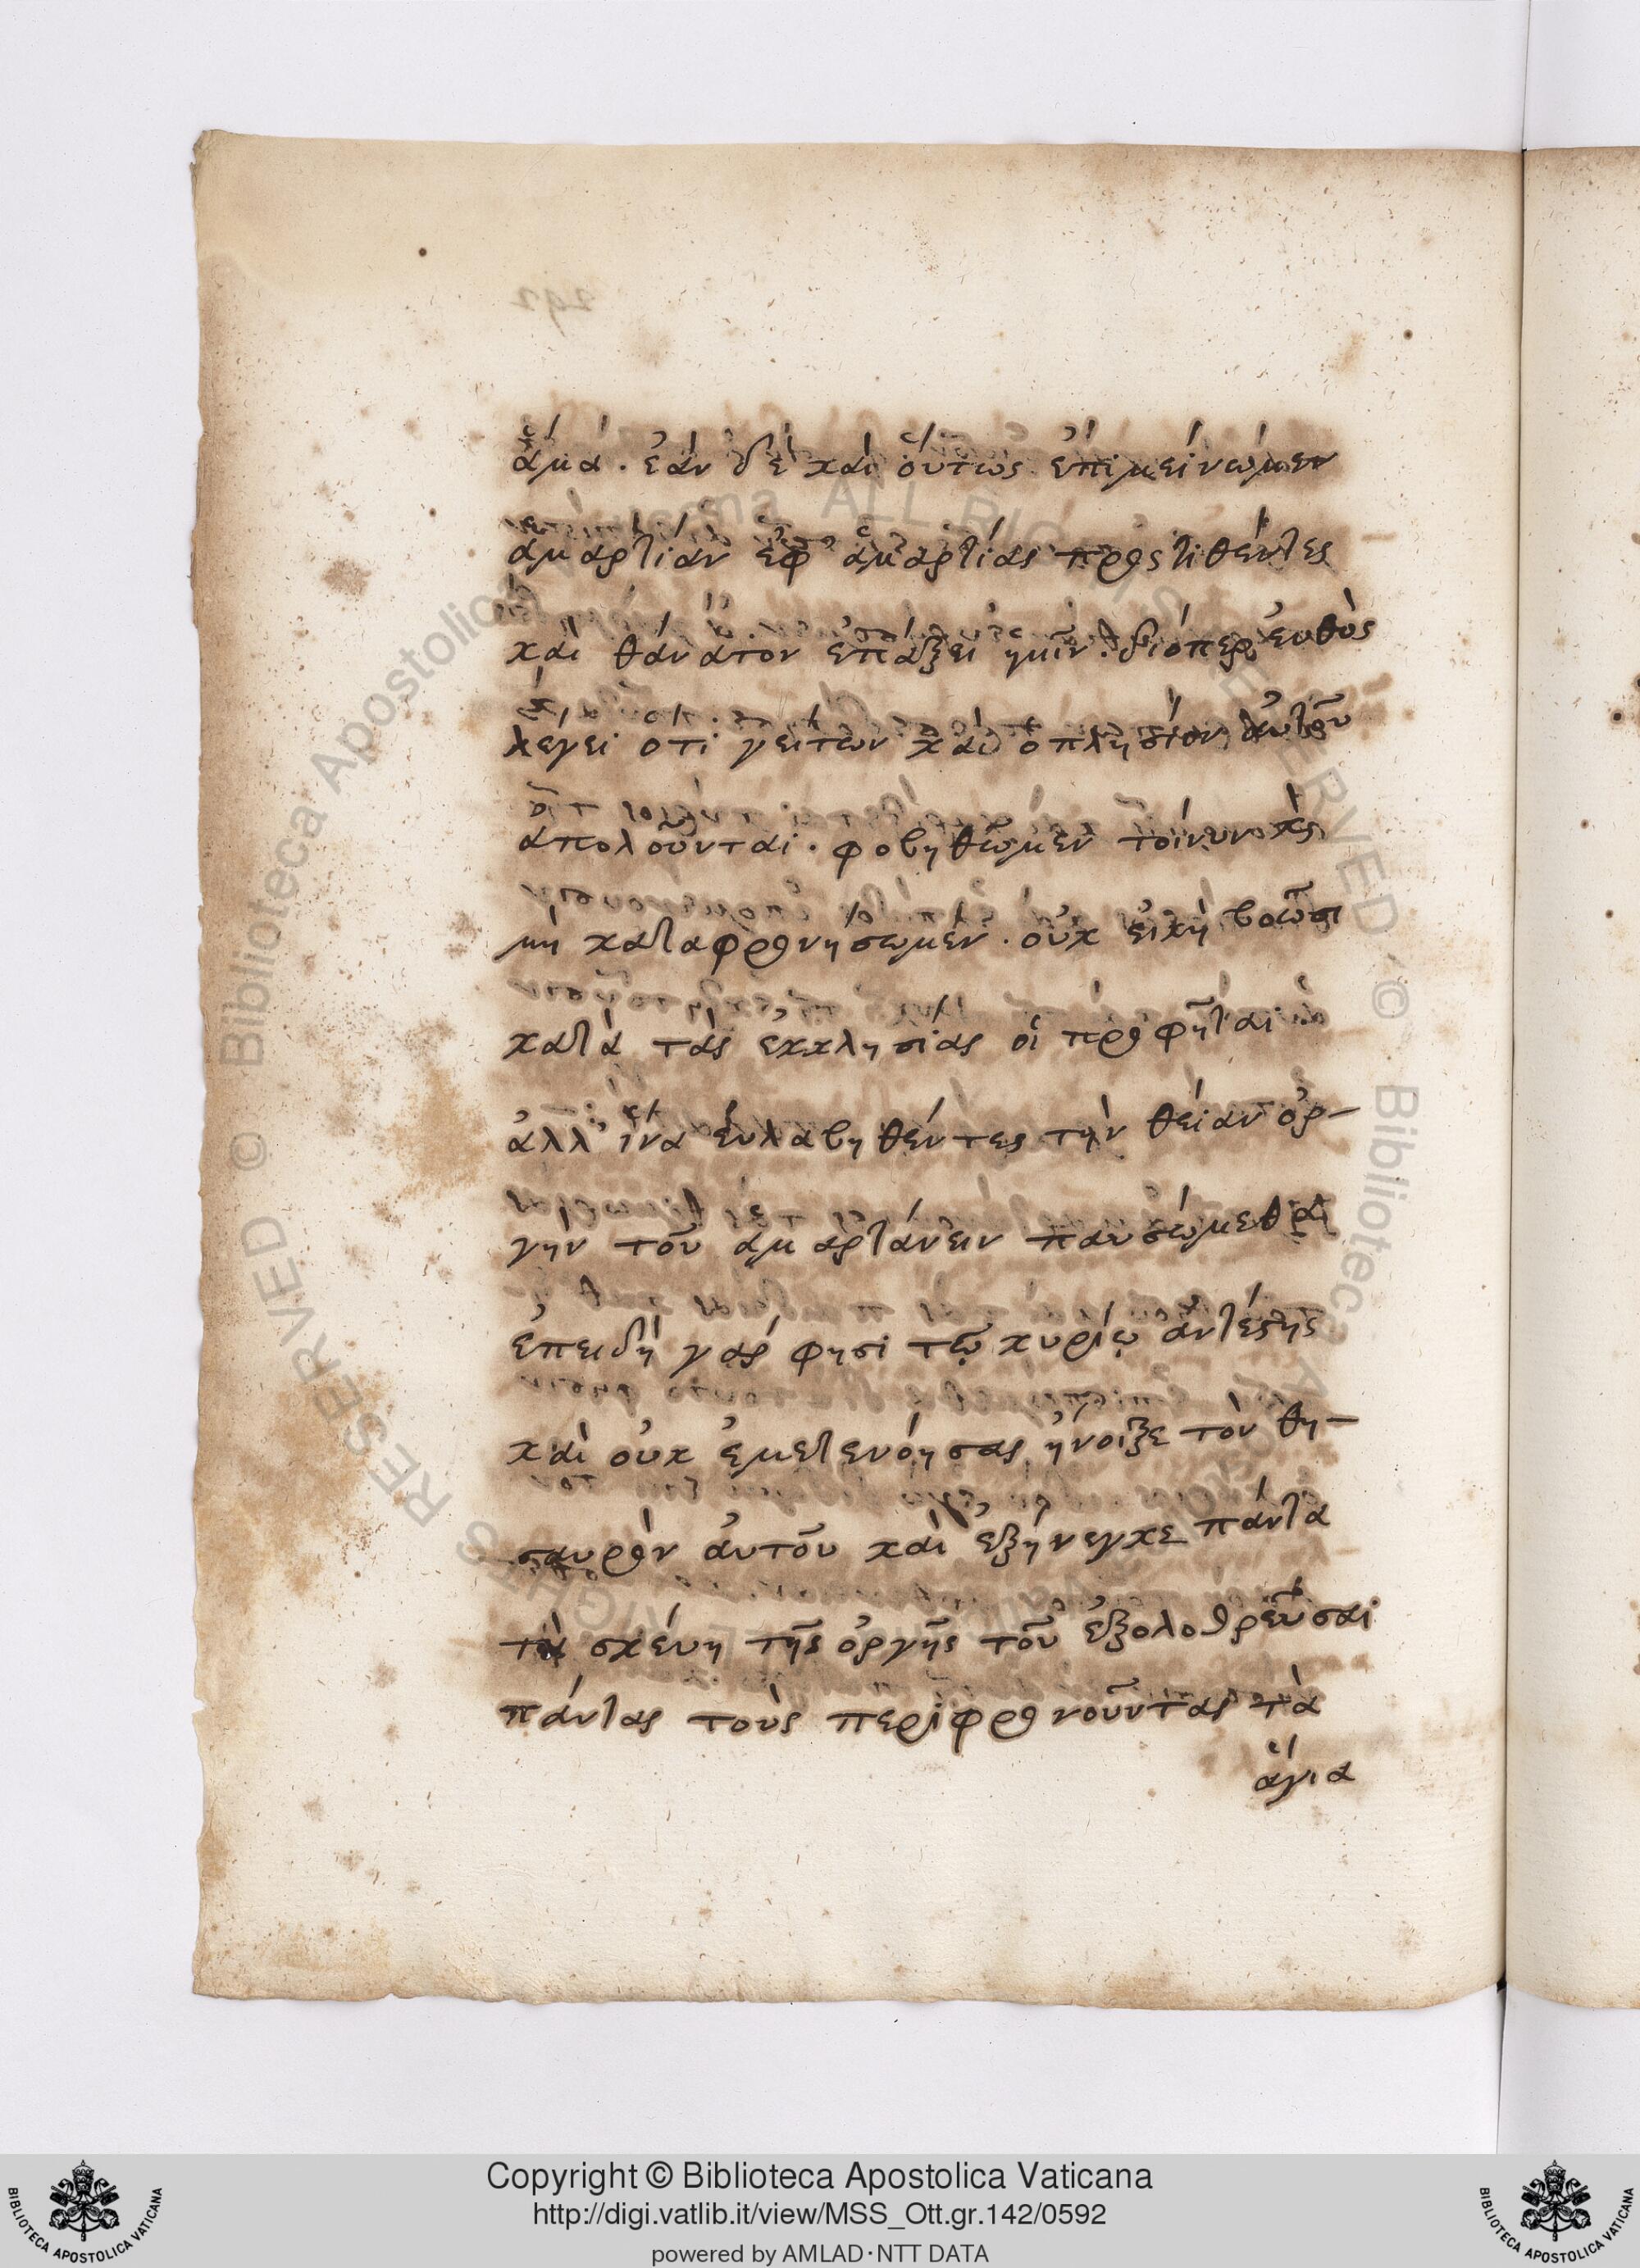 ἅμα. ἐὰν δὲ καὶ οὕτως ἐπιμείνωμεν
ἁμαρτίαν ἐφ' ἁμαρτίας προςτιθέντες
καὶ θάνατον ἐπάξει ημῖν. διόπερ ευθὺς
λέγει ὅτι γείτων καὶ ὁ πλησίον αὐτοῦ
απολοῦνται. φοβηθῶμεν τοίνυν καὶ
μὴ καταφρονήσωμεν. οὐκ εἰκῆ βοῶσι
κατὰ τὰς ἐκκλησίας οἱ προφῆται.
ἀλλ' ἵνα εὐλαβηθέντες τὴν θείαν ὀρ-
γὴν τοῦ ἁμαρτάνειν παυσώμεθα
ἐπειδὴ γάρ φησι τῷ κυρίῳ ἀντέστης
καὶ οὐκ ἐμετενόησας, ἤνοιξε τὸν θη-
σαυρὸν αὐτοῦ καὶ ἐξήνεγκε πάντα
τὰ σκέυη τῆς ὀργῆς τοῦ ἐξολοθρεῦσαι
πάντας τοὺς περιφρονοῦντας τὰ
ἅγια
© Biblioteca Apostolica Vaticana ALL RIGHTS RESERVED
Copyright © Biblioteca Apostolica Vaticana
http://digi.vatlib.it/view/MSS_Ott.gr.142/0592
powered by AMLAD·NTT DATA
BIBLIOTECA APOSTOLICA VATICANA
BIBLIOTECA APOSTOLICA VATICANA